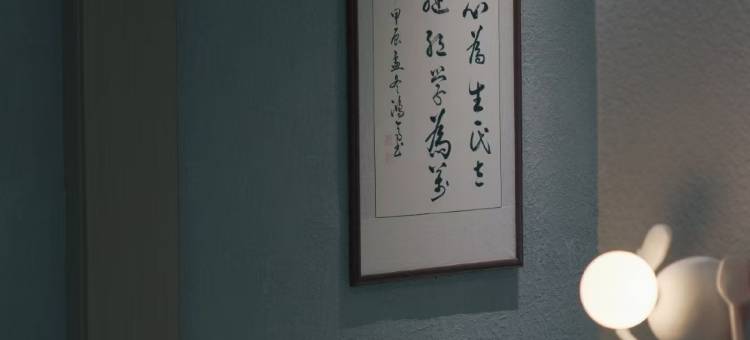 心為生民立
繼絕學為萬
甲辰孟冬鴻書